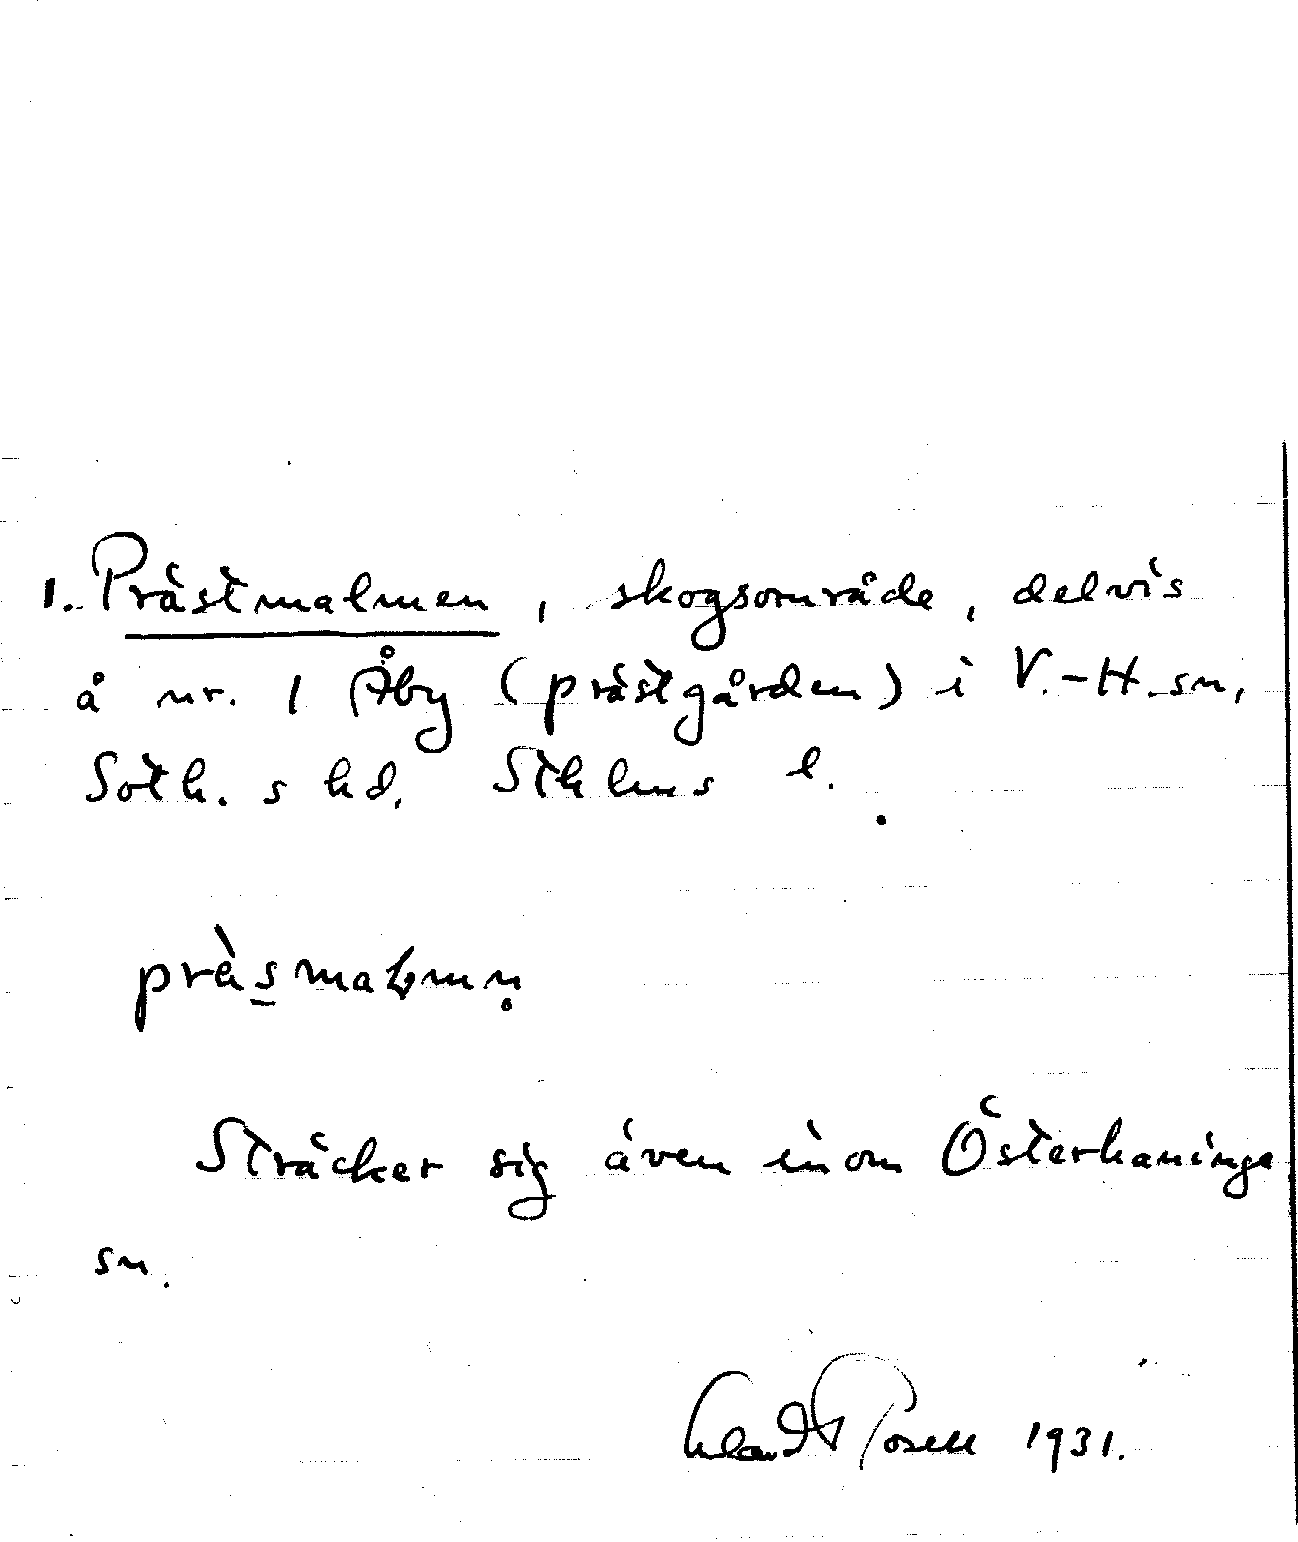 1. Prästmalmen, skogsområde, delvis
å nr. 1 Åby (prästgården) i V.-H. sn,
Soth. s hd. Sthlms l.
prὰsmałmṇ
Sträcker sig även inom Österhaninge
sn.
1931.